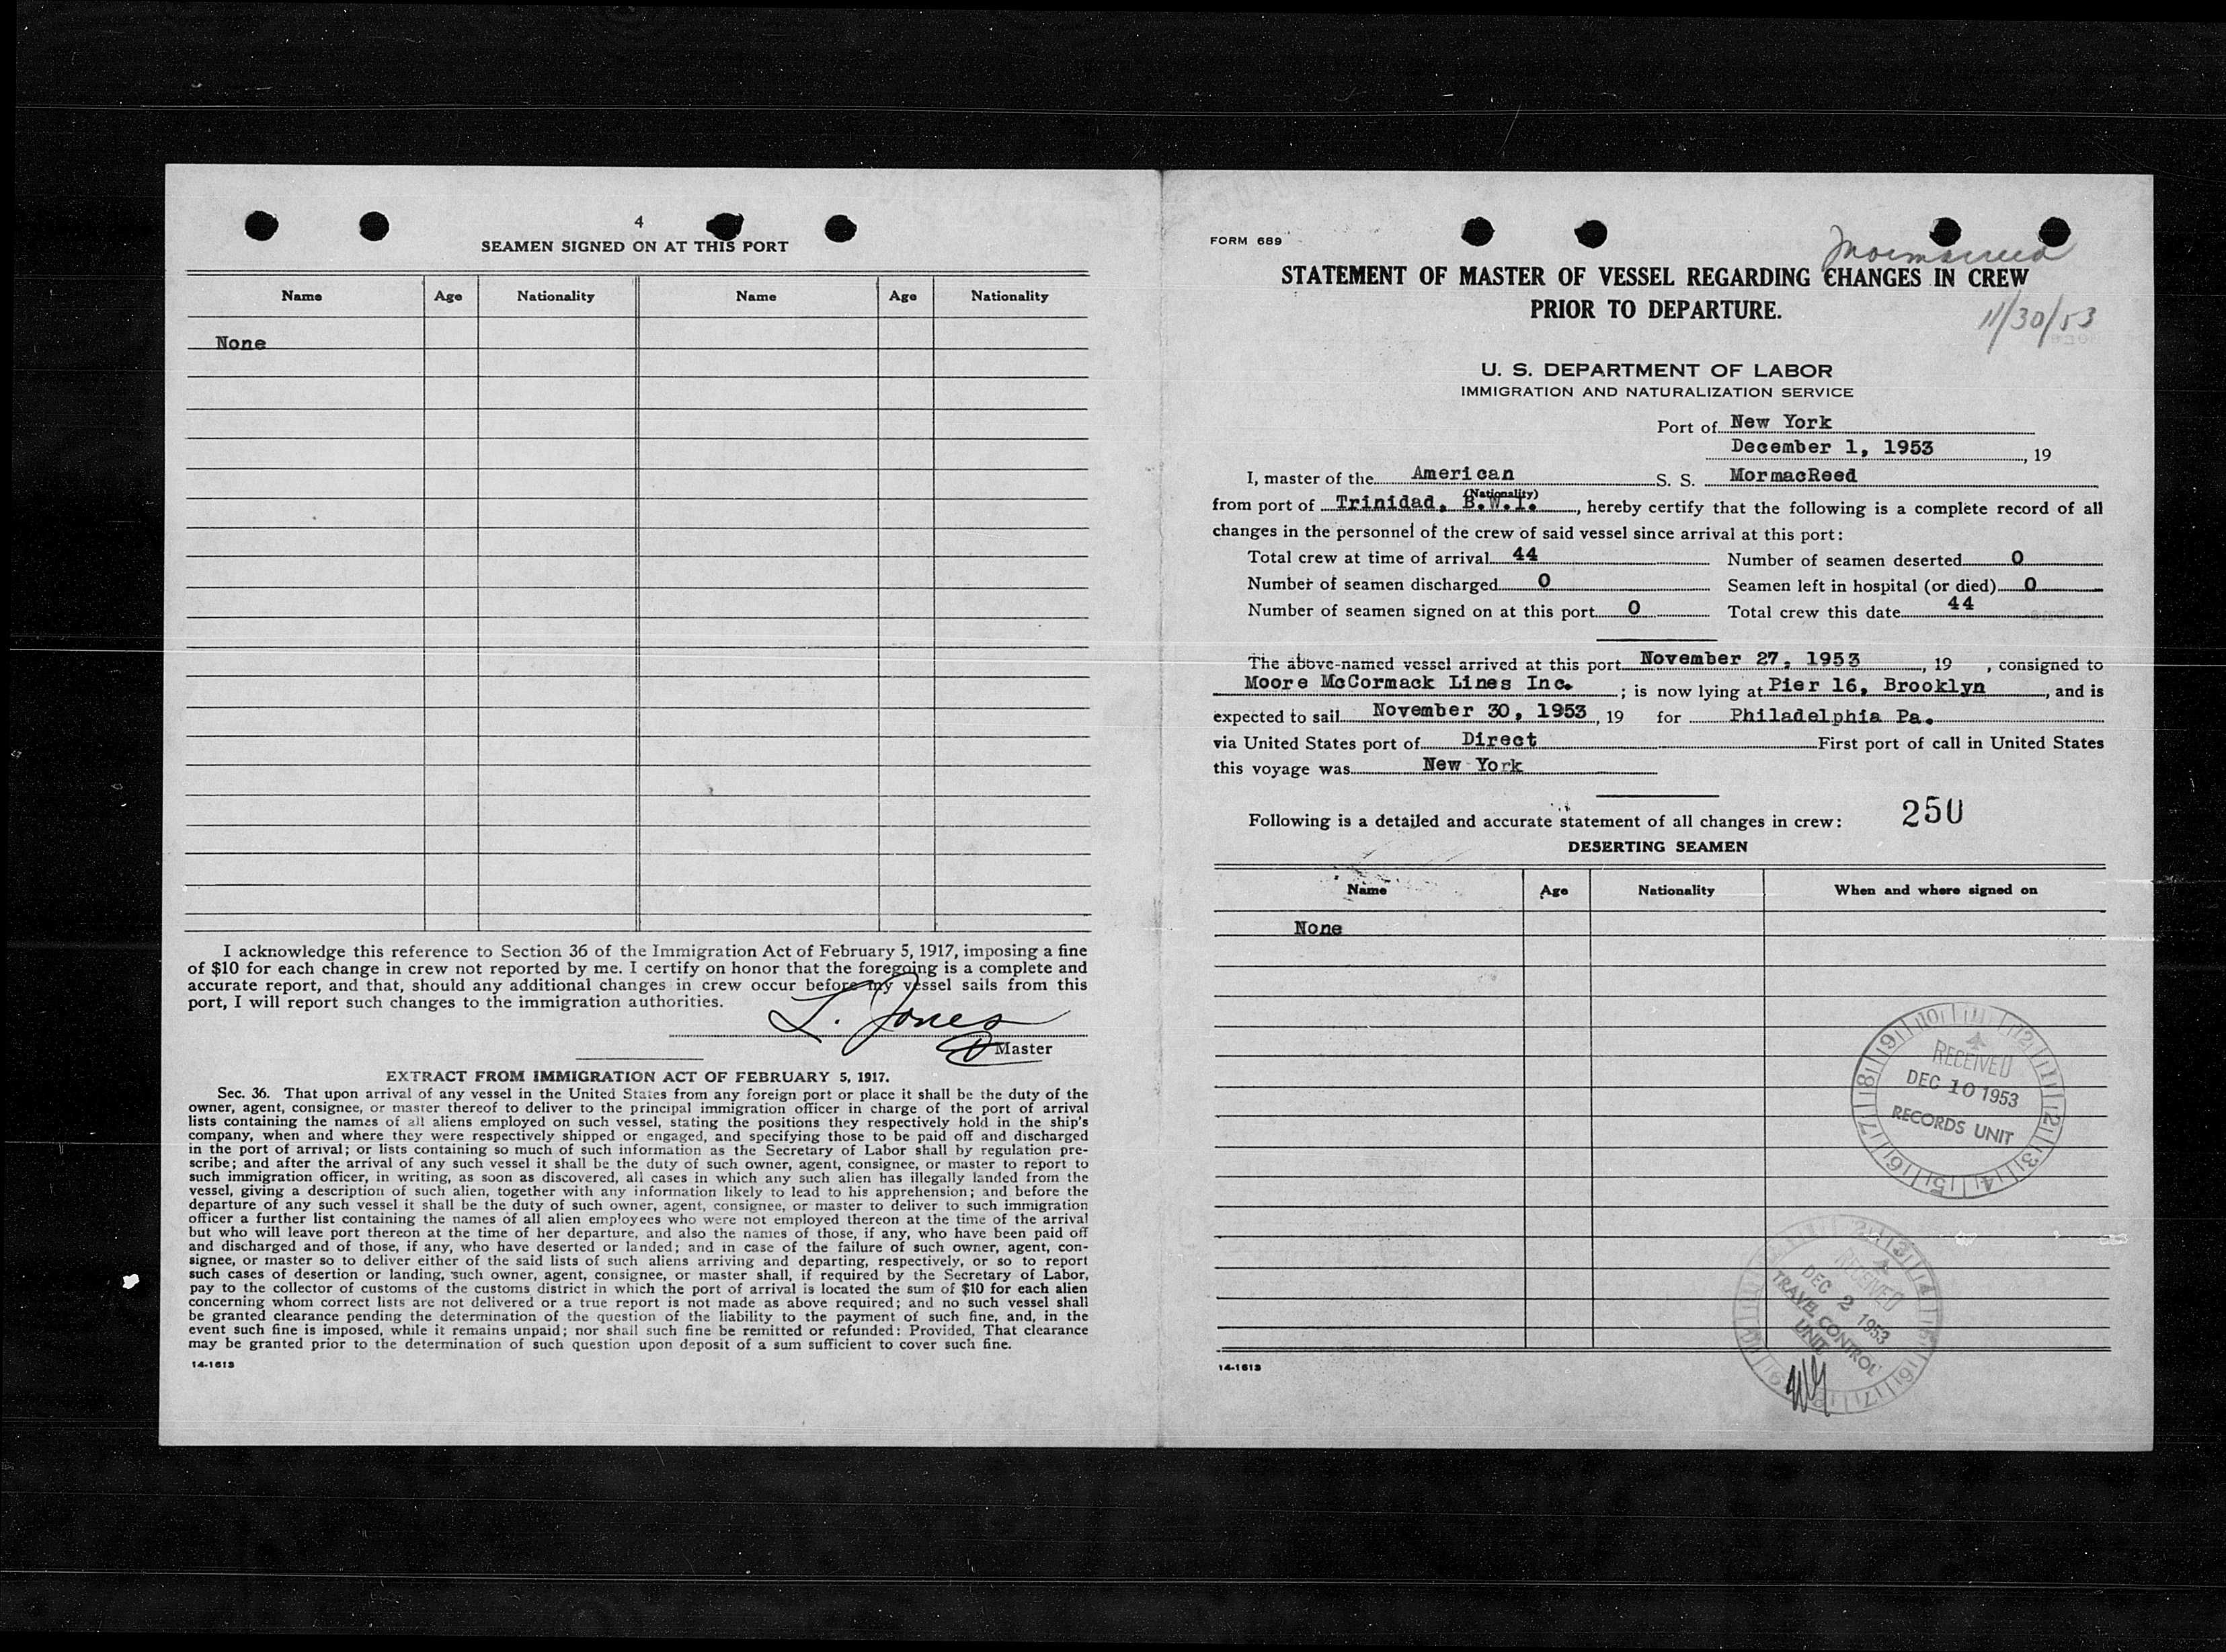 4
SEAMEN SIGNED ON AT THIS PORT
Name Age Nationality Name Age Nationality
None
I acknowledge this reference to Section 36 of the Immigration Act of February 5, 1917, imposing a fine
of $10 for each change in crew not reported by me. I certify on honor that the foregoing is a complete and
accurate report, and that, should any additional changes in crew occur before my vessel sails from this
port, I will report such changes to the immigration authorities.
L. Jones
Master
EXTRACT FROM IMMIGRATION ACT OF FEBRUARY 5, 1917.
Sec. 36. That upon arrival of any vessel in the United States from any foreign port or place it shall be the duty of the
owner, agent, consignee, or master thereof to deliver to the principal immigration officer in charge of the port of arrival
lists containing the names of all aliens employed on such vessel, stating the positions they respectively hold in the ship's
company, when and where they were respectively shipped or engaged, and specifying those to be paid off and discharged
in the port of arrival; or lists containing so much of such information as the Secretary of Labor shall by regulation pre-
scribe; and after the arrival of any such vessel it shall be the duty of such owner, agent, consignee, or master to report to
such immigration officer, in writing, as soon as discovered, all cases in which any such alien has illegally landed from the
vessel, giving a description of such alien, together with any information likely to lead to his apprehension; and before the
departure of any such vessel it shall be the duty of such owner, agent, consignee, or master to deliver to such immigration
officer a further list containing the names of all alien employees who were not employed thereon at the time of the arrival
but who will leave port thereon at the time of her departure, and also the names of those, if any, who have been paid off
and discharged and of those, if any, who have deserted or landed; and in case of the failure of such owner, agent, con-
signee, or master so to deliver either of the said lists of such aliens arriving and departing, respectively, or so to report
such cases of desertion or landing, such owner, agent, consignee, or master shall, if required by the Secretary of Labor,
pay to the collector of customs of the customs district in which the port of arrival is located the sum of $10 for each alien
concerning whom correct lists are not delivered or a true report is not made as above required; and no such vessel shall
be granted clearance pending the determination of the question of the liability to the payment of such fine, and, in the
event such fine is imposed, while it remains unpaid; nor shall such fine be remitted or refunded: Provided, That clearance
may be granted prior to the determination of such question upon deposit of a sum sufficient to cover such fine.
14-1613
FORM 689
Mormacreed
STATEMENT OF MASTER OF VESSEL REGARDING CHANGES IN CREW
PRIOR TO DEPARTURE.
11/30/53
U. S. DEPARTMENT OF LABOR
IMMIGRATION AND NATURALIZATION SERVICE
Port of New York
December 1, 1953, 19
I, master of the American S. S. MormacReed
(Nationality)
from port of Trinidad, B.W.I., hereby certify that the following is a complete record of all
changes in the personnel of the crew of said vessel since arrival at this port:
Total crew at time of arrival 44 Number of seamen deserted 0
Number of seamen discharged 0 Seamen left in hospital (or died) 0
Number of seamen signed on at this port 0 Total crew this date 44
The above-named vessel arrived at this port November 27, 1953, 19 , consigned to
Moore McCormack Lines Inc. ; is now lying at Pier 16, Brooklyn, and is
expected to sail November 30, 1953, 19 for Philadelphia Pa.
via United States port of Direct First port of call in United States
this voyage was New York
Following is a detailed and accurate statement of all changes in crew: 250
DESERTING SEAMEN
Name Age Nationality When and where signed on
None
RECEIVED
DEC 10 1953
RECORDS UNIT
RECEIVED
DEC 2 1953
TRAVEL CONTROL
UNIT
14-1613